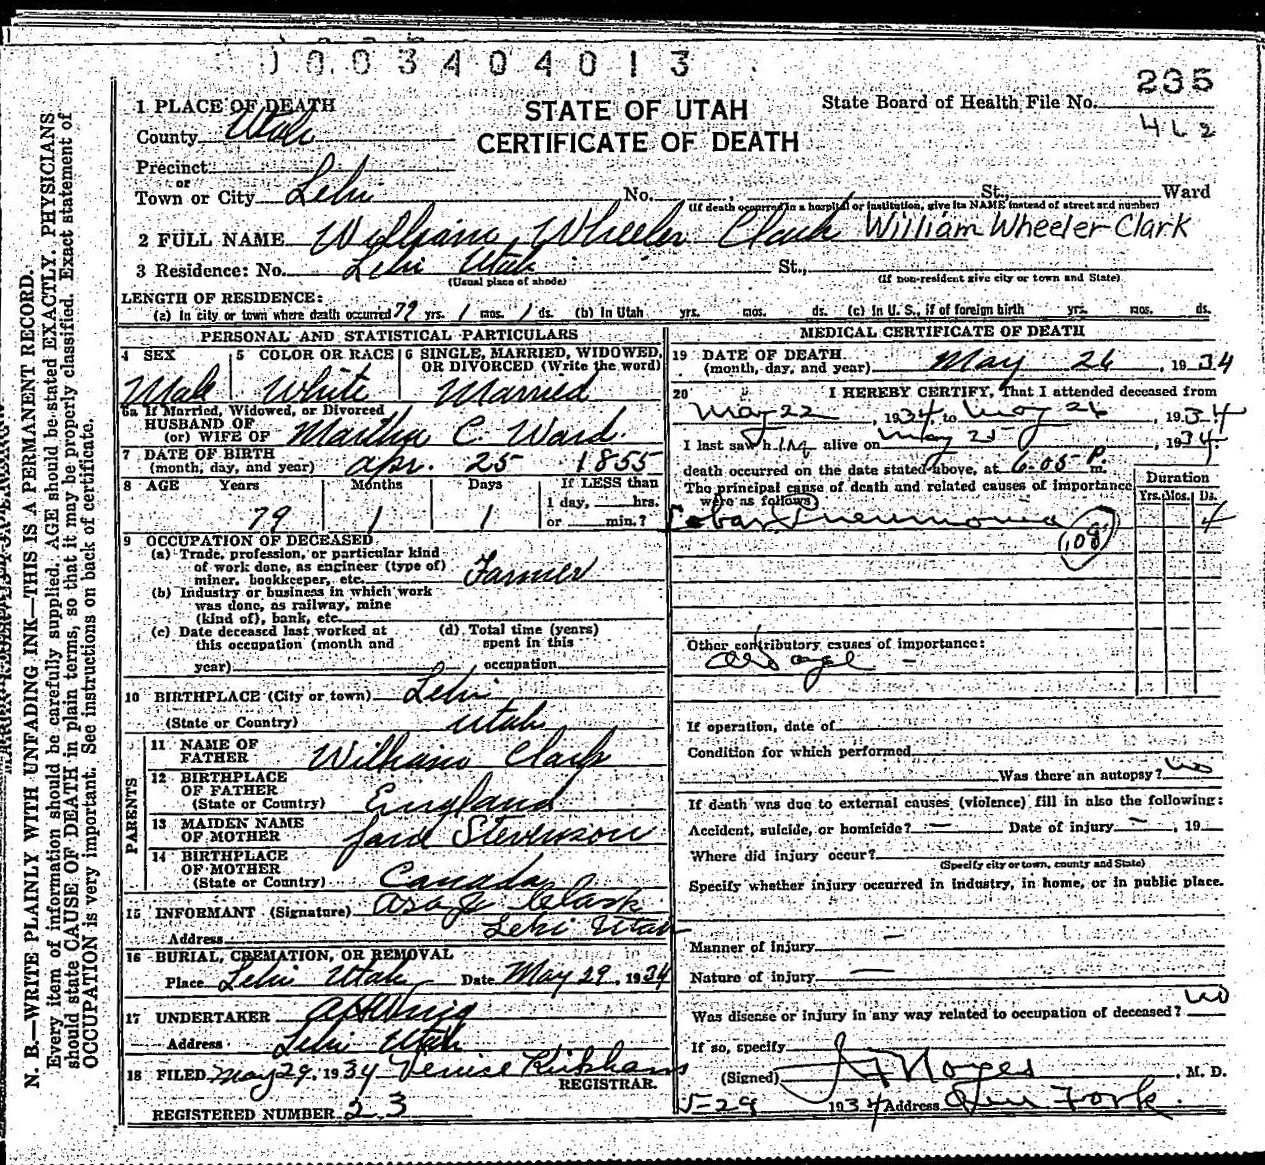 1 0 0 3 4 0 4 0 1 3
235
1 PLACE OF DEATH
STATE OF UTAH
State Board of Health File No.
County Utah
CERTIFICATE OF DEATH
Precinct
or
Town or City Lehi No. , St., Ward
(If death occurred in a hospital or institution, give its NAME instead of street and number)
2 FULL NAME William Wheeler Clark William Wheeler Clark
3 Residence: No. Lehi Utah St.,
(Usual place of abode) (If non-resident give city or town and State)
LENGTH OF RESIDENCE:
(a) In city or town where death occurred 79 yrs. 1 mos. 1 ds. (b) In Utah yrs. mos. ds. (c) In U. S., if of foreign birth yrs. mos. ds.
PERSONAL AND STATISTICAL PARTICULARS
4 SEX 5 COLOR OR RACE 6 SINGLE, MARRIED, WIDOWED,
OR DIVORCED (Write the word)
Male White Married
6a If Married, Widowed, or Divorced
HUSBAND OF
(or) WIFE OF Martha C. Ward.
7 DATE OF BIRTH
(month, day, and year) Apr. 25 1855
8 AGE Years Months Days If LESS than
1 day, hrs.
79 1 1 or min.?
9 OCCUPATION OF DECEASED
(a) Trade, profession, or particular kind
of work done, as engineer (type of)
miner, bookkeeper, etc. Farmer
(b) Industry or business in which work
was done, as railway, mine
(kind of), bank, etc.
(c) Date deceased last worked at (d) Total time (years)
this occupation (month and spent in this
year) occupation
10 BIRTHPLACE (City or town) Lehi
(State or Country) Utah
PARENTS
11 NAME OF
FATHER William Clark
12 BIRTHPLACE
OF FATHER
(State or Country) England
13 MAIDEN NAME
OF MOTHER Jane Stevenson
14 BIRTHPLACE
OF MOTHER
(State or Country) Canada
15 INFORMANT (Signature) Asa J. Clark
Address Lehi Utah
16 BURIAL, CREMATION, OR REMOVAL
Place Lehi Utah Date May 29, 1934
17 UNDERTAKER
Address Lehi Utah
18 FILED May 29, 1934 Venise Kirkham
REGISTRAR.
REGISTERED NUMBER 23
MEDICAL CERTIFICATE OF DEATH
19 DATE OF DEATH
(month, day, and year) May 26, 1934
20 I HEREBY CERTIFY, That I attended deceased from
May 22, 1934, to May 26, 1934
I last saw him alive on May 25, 1934.
death occurred on the date stated above, at 6:05 P. m.
The principal cause of death and related causes of importance
were as follows: Duration
Yrs. Mos. Ds.
Lobar Pneumonia 4
108
Other contributory causes of importance:
Old age
If operation, date of
Condition for which performed
Was there an autopsy? no
If death was due to external causes (violence) fill in also the following:
Accident, suicide, or homicide? — Date of injury —, 19
Where did injury occur?
(Specify city or town, county and State)
Specify whether injury occurred in industry, in home, or in public place.
Manner of injury —
Nature of injury —
Was disease or injury in any way related to occupation of deceased? no
If so, specify
(Signed) Noyes, M. D.
5-29 1934 Address Am Fork.
N. B.—WRITE PLAINLY WITH UNFADING INK—THIS IS A PERMANENT RECORD.
Every item of information should be carefully supplied. AGE should be stated EXACTLY. PHYSICIANS
should state CAUSE OF DEATH in plain terms, so that it may be properly classified. Exact statement of
OCCUPATION is very important. See instructions on back of certificate.